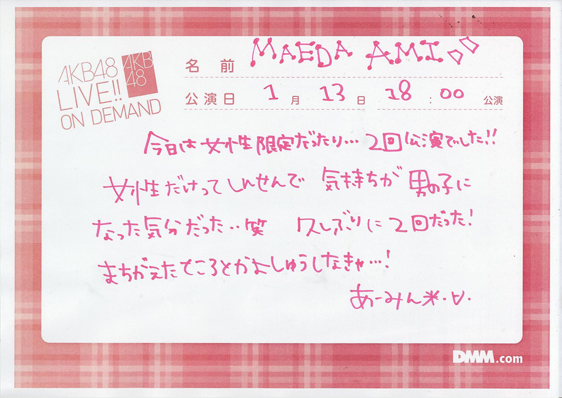 AKB48
LIVE!!
ON DEMAND
AKB
48
名前 MAEDA AMI
公演日 1月13日 18:00 公演
今日は女性限定だったり…2回公演でした!!
女性だけってしんせんで 気持ちが 男の子に
なった気分だった‥笑 久しぶりに2回だった!
まちがえたところとかふくしゅうしなきゃ…!
あーみん*・∀・
DMM.com